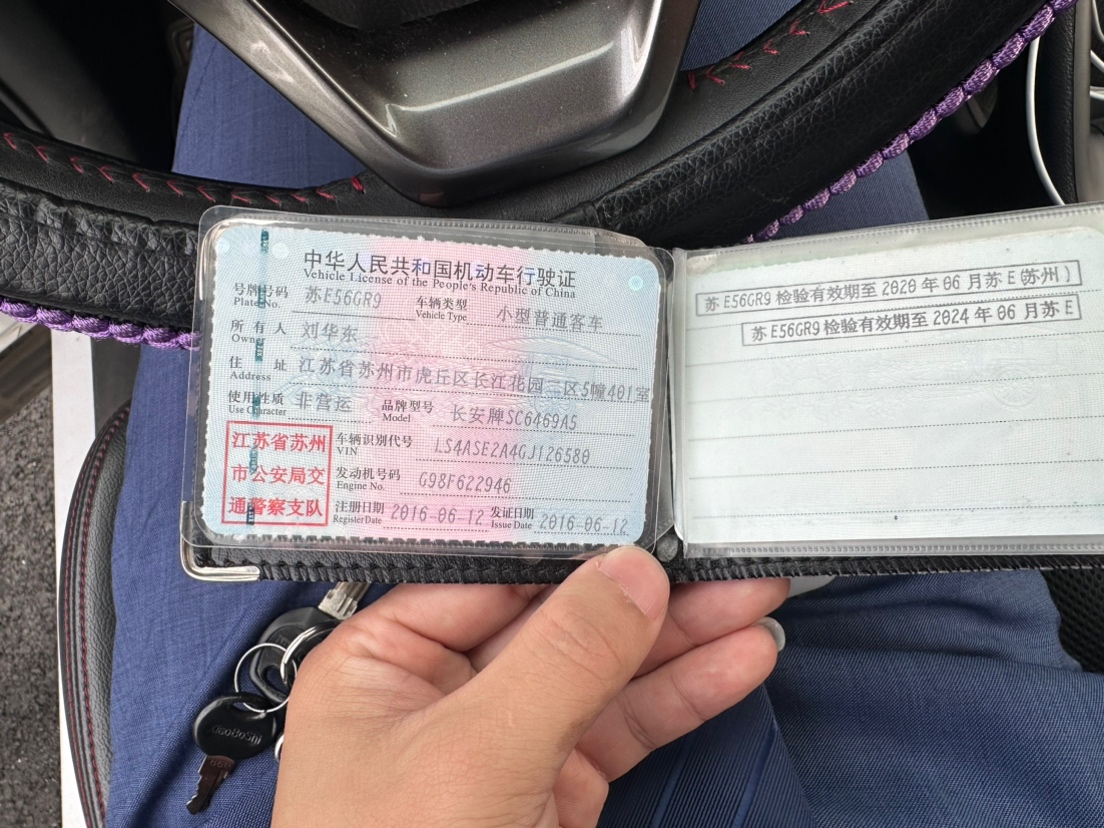 中华人民共和国机动车行驶证
Vehicle License of the People's Republic of China
号牌号码 苏E56GR9 车辆类型 小型普通客车
Plate No. Vehicle Type
所有人 刘华东
Owner
住址 江苏省苏州市虎丘区长江花园三区5幢401室
Address
使用性质 非营运 品牌型号 长安牌SC6469A5
Use Character Model
江苏省苏州
市公安局交
通警察支队
车辆识别代号 LS4ASE2A4GJ126580
VIN
发动机号码 G98F622946
Engine No.
注册日期 2016-06-12 发证日期 2016-06-12
Register Date Issue Date
苏E56GR9检验有效期至2020年06月苏E(苏州)
苏E56GR9检验有效期至2024年06月苏E